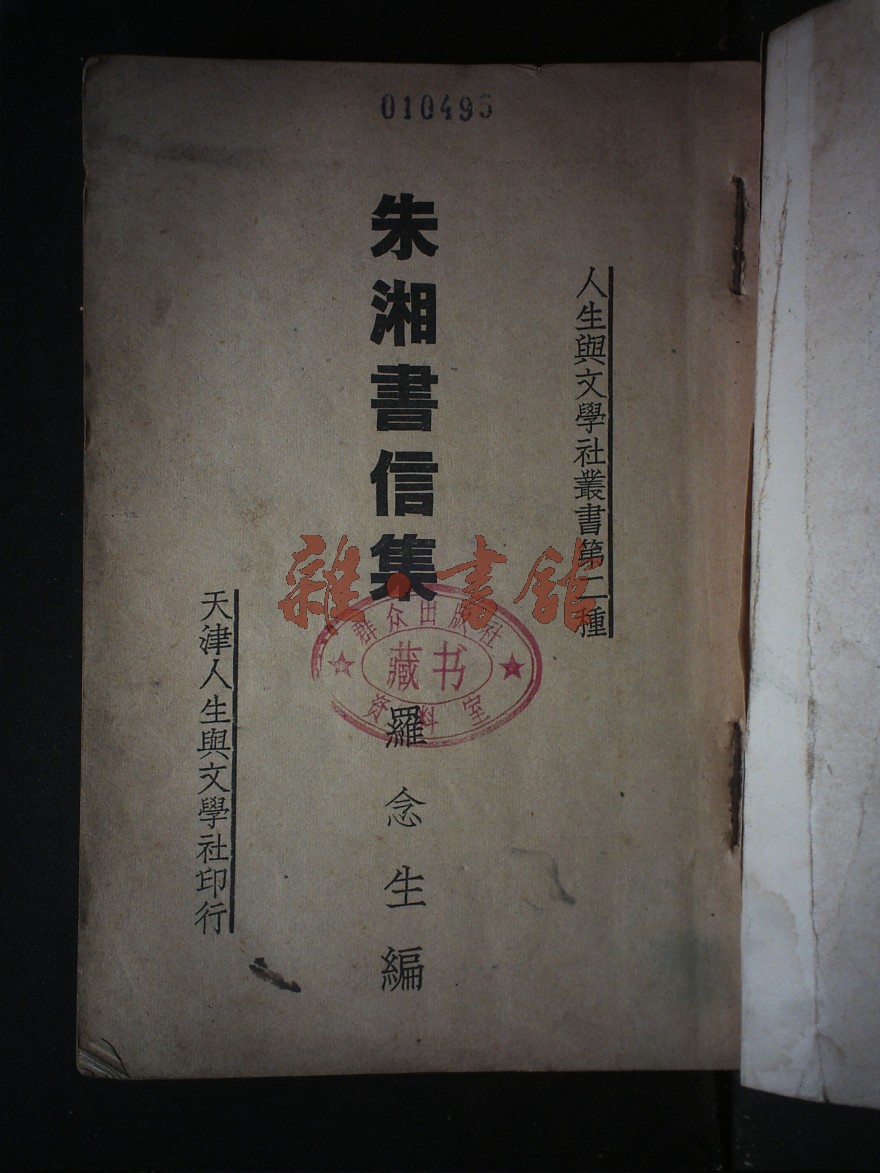 010495
人生與文學社叢書第二種
朱湘書信集
羅念生編
天津人生與文學社印行
群众出版社
藏书
资料室
雜·書館